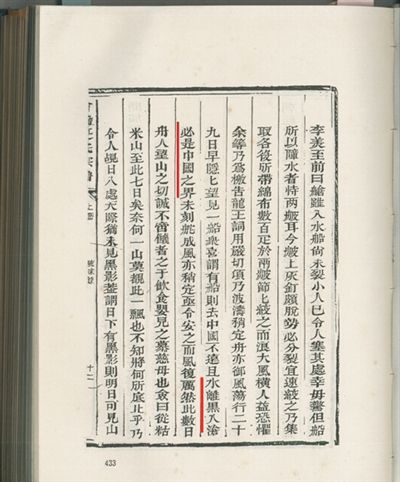 李美至前曰艙雖入水船尚未裂小人已令人塞其處幸毋驚但船
所以障水者恃兩皷耳今皷上灰釘頗脫勢必分裂宜速絞之乃集
取各役所帶綿布數百疋於兩皷節匕絞之而浪大風橫人益恐懼
余等乃為檄告龍王詞用嚴切頃乃波濤稍定舟亦御風蕩行二十
九日早隱匕望見一船眾喜謂有船則去中國不遠且水離黑入滄
必是中國之界未刻舵風亦稍定亟令安之而風復厲然此數日
舟人望山之切誠不啻饑者之于飲食嬰兒之慕慈母也僉曰從粘
米山至此七日矣奈何一山莫覩此一飄也不知將何所底止乎乃
令人覘日入處天際猶未見黑影蓋謂日下有黑影則明日可見山
433